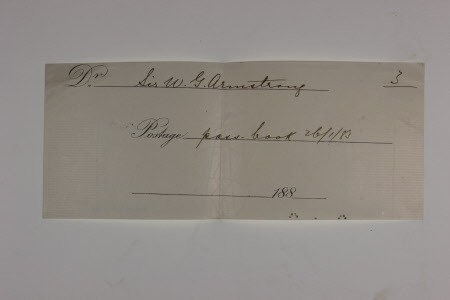 Dr. Sir W. G. Armstrong 3
Postage pass book 26/1/83
188